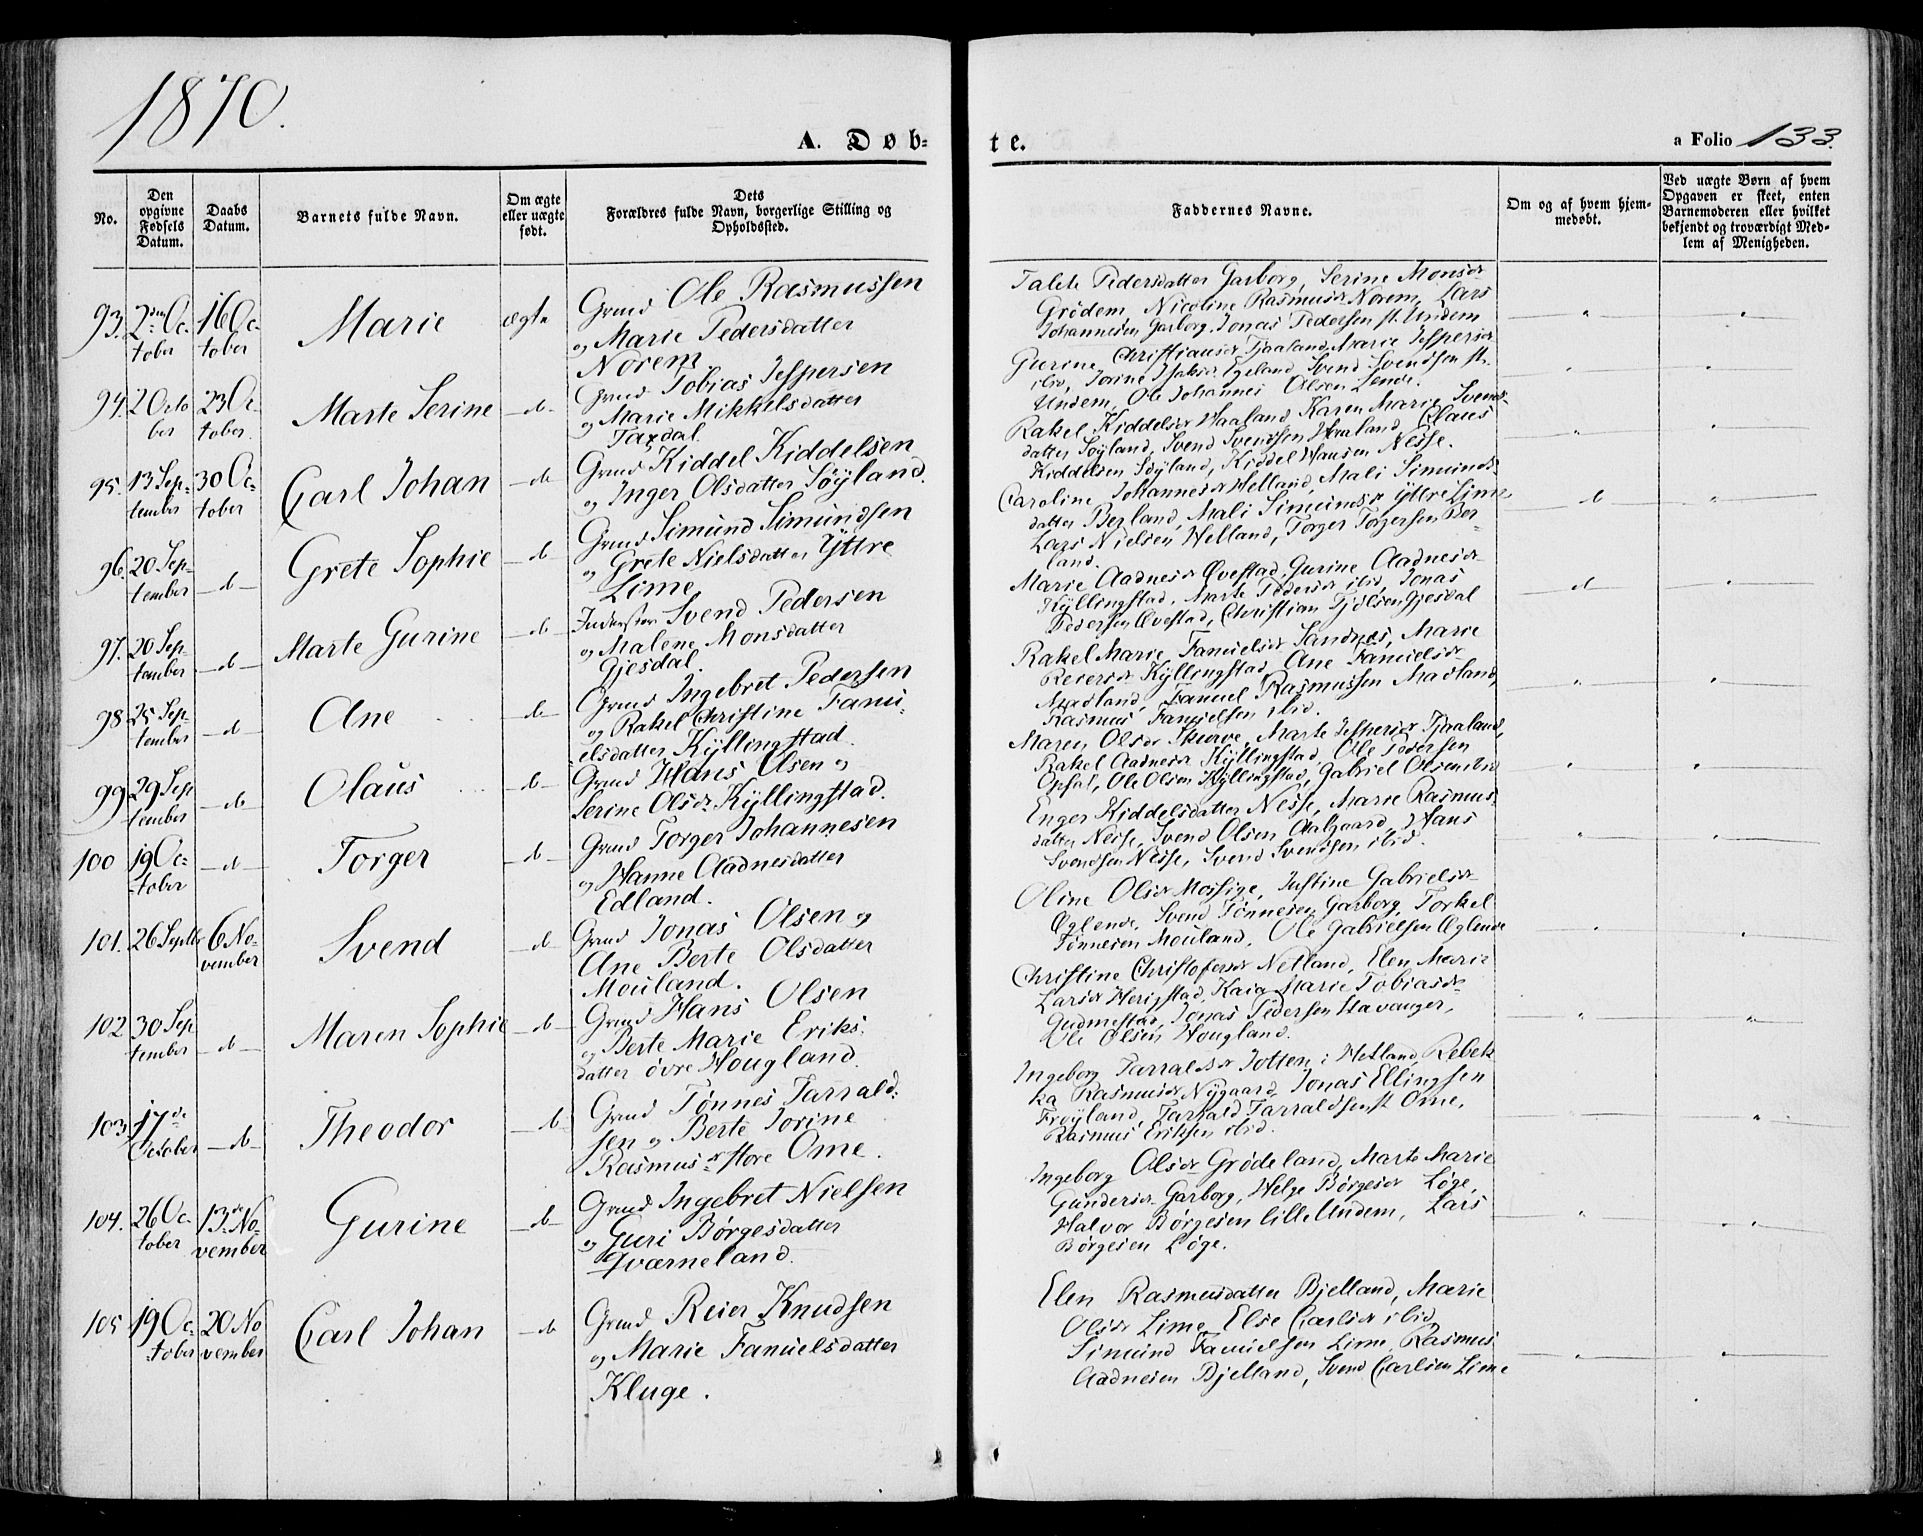 1870.
A. Døb-
te.
a Folio 133.
No.
Den opgivne Fødsels Datum.
Daabs Datum.
Barnets fulde Navn.
Om ægte eller uægte født.
Dets Forældres fulde Navn, borgerlige Stilling og Opholdssted.
Faddernes Navne.
Om og af hvem hjemmedøbt.
Ved uægte Børn af hvem Opgaven er skeet, enten Barnemoderen eller hvilket bekjendt og troværdigt Medlem af Menigheden.
93. 2den October 16 October Marie ægte
Grmd Ole Rasmussen
og Marie Pedersdatter
Norem
Talete Pedersdatter Garborg, Serine Monsdr
Grødem, Nicoline Rasmusdr Norem, Lars
Johannesen Garborg, Jonas Pedersen st. Undem
94. 2 October 23 October Marte Serine do
Grmd Tobias Jespersen
og Marie Mikkelsdatter
Taxdal.
Gurine Christiansdr Tjaaland, Marie Jespersdr
ibid, Jorine Isaksdr Egeland, Svend Svendsen st.
Undem, Ole Johannes Olsen Lende.
95. 13 September 30 October Carl Johan do
Grmd Kiddel Kiddelsen
og Inger Olsdatter Søyland.
Rakel Kiddelsdr Haaland, Karen Marie Svends-
datter Søyland, Svend Svendsen Haaland, Claus
Kiddelsen Søyland, Kiddel Hansen Nesse.
96. 20 September do Grete Sophie do
Grmd Simund Simundsen
og Grete Nielsdatter Yttre
Lime
Caroline Johannesdr Helland, Mali Simunds-
datter Berland, Mali Simundsdr Yttre Lime
Lars Nielsen Helland, Torger Torgersen Ber-
land.
97. 20 September do Marte Gurine do
Inderster Svend Pedersen
og Malene Monsdatter
Gjesdal.
Marie Aadnesdr Øvestad, Gurine Aadnesdr
Kyllingstad, Marte Pedersdr ibid, Jonas
Pedersen Øvestad, Christian Tjølsen Gjesdal
98 25 September do Ane do
Grmd Ingebret Pedersen
og Rakel Christine Fanu-
elsdatter Kyllingstad.
Rakel Marie Fanuelsdr Sandnes, Marie
Reiersdr Kyllingstad, Ane Fanuelsdr
Madland, Fanuel Rasmussen Madland,
Rasmus Fanuelsen ibid.
99 29 September do Olaus do
Grmd Hans Olsen og
Serine Olsdr Kyllingstad.
Maren Olsdr Skurve, Marte Jespersdr Tjaaland,
Rakel Aadnesdr Kyllingstad, Ole Pedersen
Opsal, Ole Olsen Kyllingstad, Gabriel Olsen ibid
100 19 October do Torger do
Grmd Torger Johannesen
og Hanne Aadnesdatter
Edland.
Enger Kiddelsdatter Nesse, Marie Rasmus-
datter Nesse, Svend Olsen Aalgaard, Hans
Svendsen Nesse, Svend Svendsen ibid.
101. 26 Septbr 6 November Svend do
Grmd Jonas Olsen og
Ane Berte Olsdatter
Mouland.
Oline Olsdr Mossige, Justine Gabrielsdr
Øglende, Svend Tønnesen Garborg, Torkel
Tønnesen Mouland, Ole Gabrielsen Øglende
102 30 September do Maren Sophie do
Grmd Hans Olsen
og Berte Marie Eriks-
datter øvre Hougland.
Christine Christofersdr Netland, Elen Marie
Larsdr Herigstad, Kaia Marie Tobiasdr
Gudmestad, Jonas Pedersen Stavanger,
Ole Olsen Hougland.
103. 17de October do Theodor do
Grmd Tønnes Tarrald-
sen og Berte Jorine
Rasmusdr store Ome.
Ingeborg Tarraldsdr Jotten i Hetland, Rebek-
ka Rasmusdr Nygaard, Jonas Ellingsen
Frøyland, Tarrald Tarraldsen st Ome,
Rasmus Eriksen ibid.
104. 26 October 13de November Gurine do
Grmd Ingebret Nielsen
og Guri Børgesdatter
Kværneland.
Ingeborg Olsdr Grødeland, Marte Marie
Gundersdr Garborg, Helge Børgesdr Løge,
Halvor Børgesen lille Undem, Lars
Børgesen Løge.
105 19 October 20 November Carl Johan do
Grmd Reier Knudsen
og Marie Fanuelsdatter
Kluge.
Elen Rasmusdatter Bjelland, Marie
Olsdr Lime, Else Carlsdr ibid,
Simund Fanuelsen Lime, Rasmus
Aadnesen Bjelland, Svend Carlsen Lime